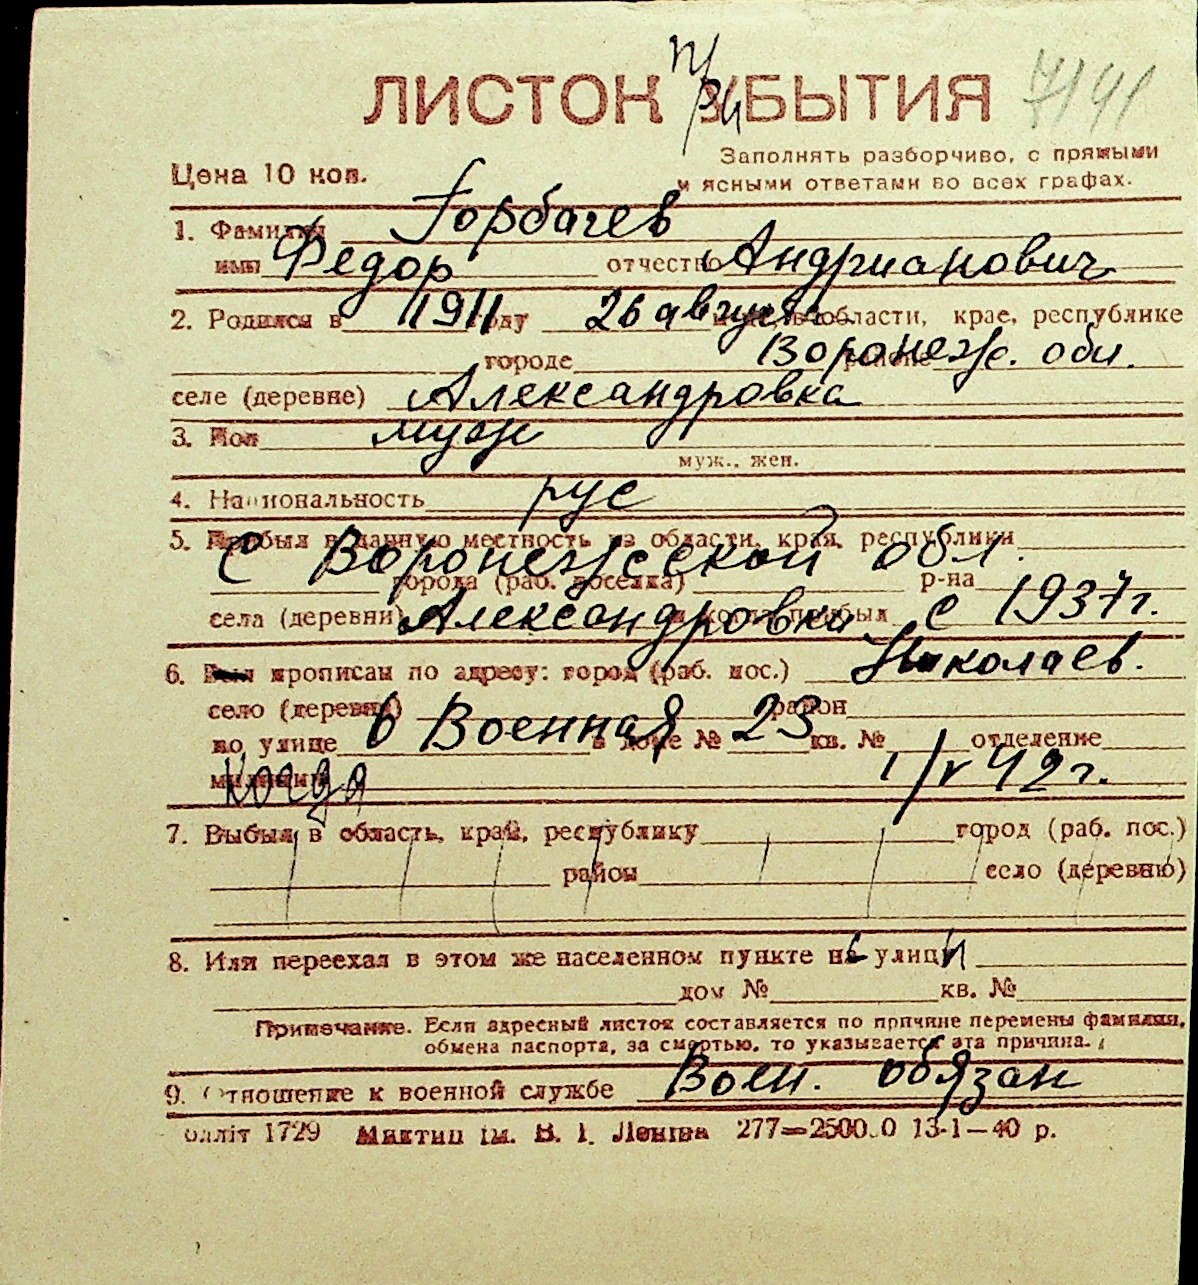 ЛИСТОК УБЫТИЯ
Цена 10 коп.
Заполнять разборчиво, с прямыми
и ясными ответами во всех графах.
1. Фамилия Горбачев
имя Федор отчество Андрианович
2. Родился в 1911 году 26 августа области, крае, республике
городе Воронеж. обл.
селе (деревне) Александровка
3. Пол муж
муж., жен.
4. Национальность рус
5. Прибыл в данную местность из области, края, республики
С Воронежеской обл.
города (раб. поселка) р-на
села (деревни) Александровка и когда прибыл с 1937 г.
6. Был прописан по адресу: город (раб. пос.) Николаев.
село (деревня) район
по улице 6 Военная в доме № 23 кв. № отделение
милиции Когда 1/V 42 г.
7. Выбыл в область, край, республику город (раб. пос.)
район село (деревню)
8. Или переехал в этом же населенном пункте на улицу
дом № кв. №
Примечание. Если адресный листок составляется по причине перемены фамилии,
обмена паспорта, за смертью, то указывается эта причина.
9. Отношение к военной службе Воен. обязан
олліт 1729 ім. В. І. Леніна 277—2500.0 13-1—40 р.